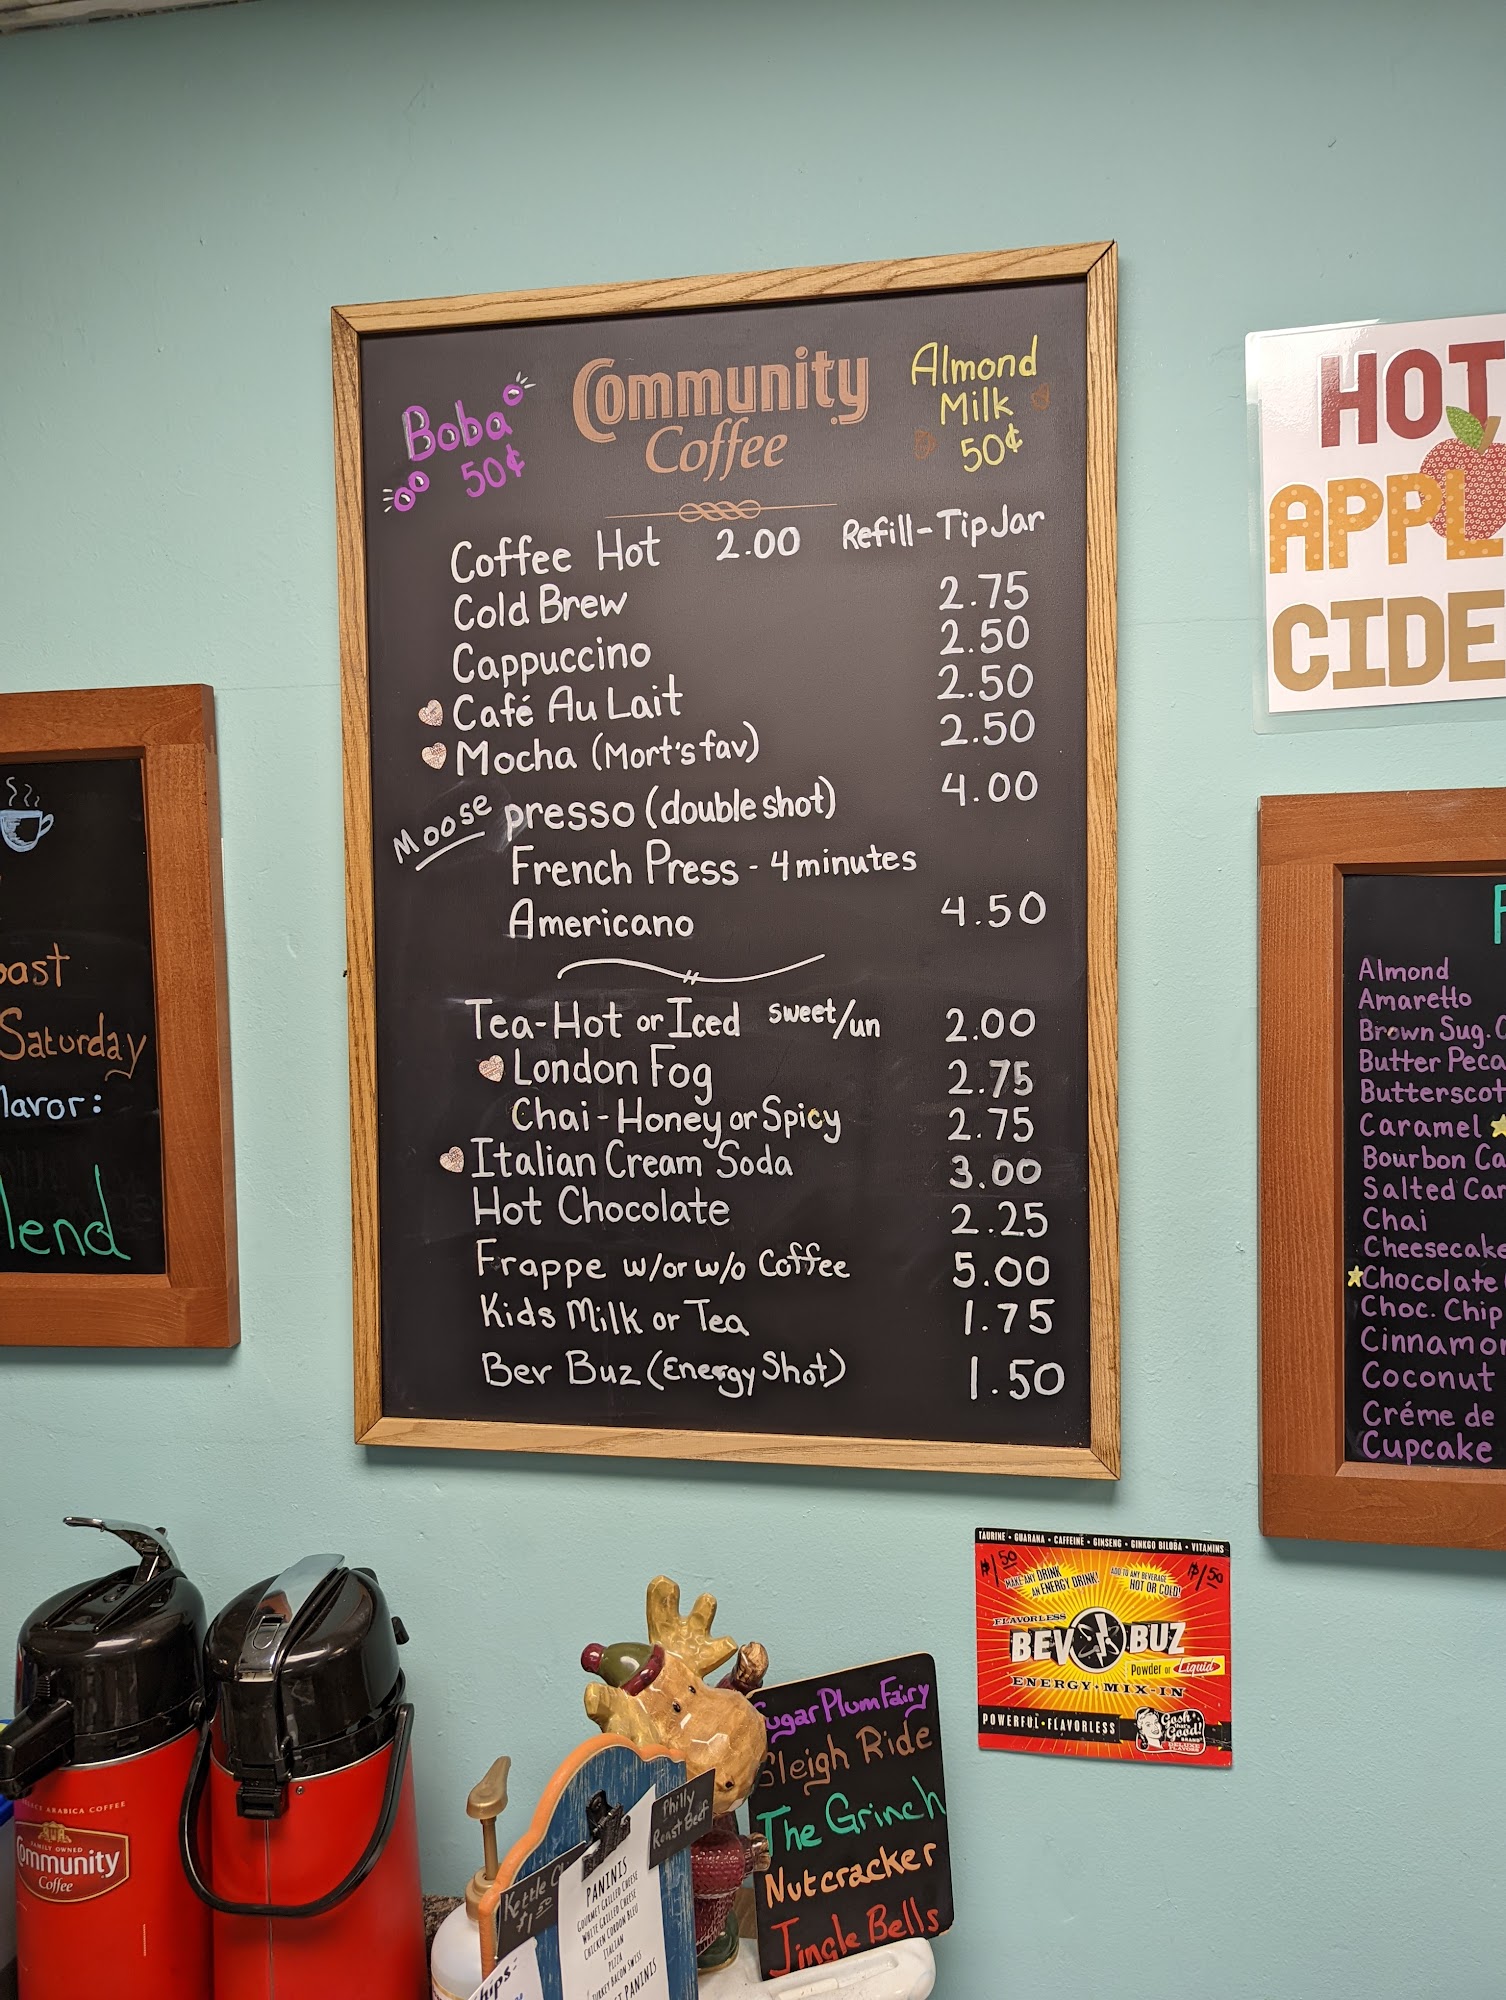 Boba
50¢
Community
Coffee
Almond
Milk
50¢
Coffee Hot 2.00 Refill-Tip Jar
Cold Brew 2.75
Cappuccino 2.50
Café Au Lait 2.50
Mocha (Mort's fav) 2.50
Moose presso (double shot) 4.00
French Press - 4 minutes
Americano 4.50
Tea-Hot or Iced sweet/un 2.00
London Fog 2.75
Chai-Honey or Spicy 2.75
Italian Cream Soda 3.00
Hot Chocolate 2.25
Frappe w/or w/o Coffee 5.00
Kids Milk or Tea 1.75
Bev Buz (Energy Shot) 1.50
HOT
APPL
CIDE
Saturday
Almond
Amaretto
Brown Sug.
Butter
Caramel
Bourbon
Salted
Chai
Cheesecake
Chocolate
Choc. Chip
Coconut
Créme de
Cupcake
TAURINE • GUARANA • CAFFEINE • GINSENG • GINKGO BILOBA • VITAMINS
$1.50
MAKE ANY DRINK
AN ENERGY DRINK!
ADD TO ANY BEVERAGE
HOT OR COLD!
$1.50
FLAVORLESS
BEV BUZ
Powder or Liquid
ENERGY • MIX-IN
POWERFUL • FLAVORLESS
Gosh
that's
Good!
BRAND
Sugar Plum Fairy
Sleigh Ride
The Grinch
Nutcracker
Jingle Bells
Philly
Roast Beef
Kettle
$1.50
PANINIS
GOURMET GRILLED CHEESE
WHITE GRILLED CHEESE
CHICKEN CORDON BLEU
ITALIAN
PIZZA
TURKEY BACON SWISS
PANINIS
ARABICA COFFEE
FAMILY OWNED
Community
Coffee